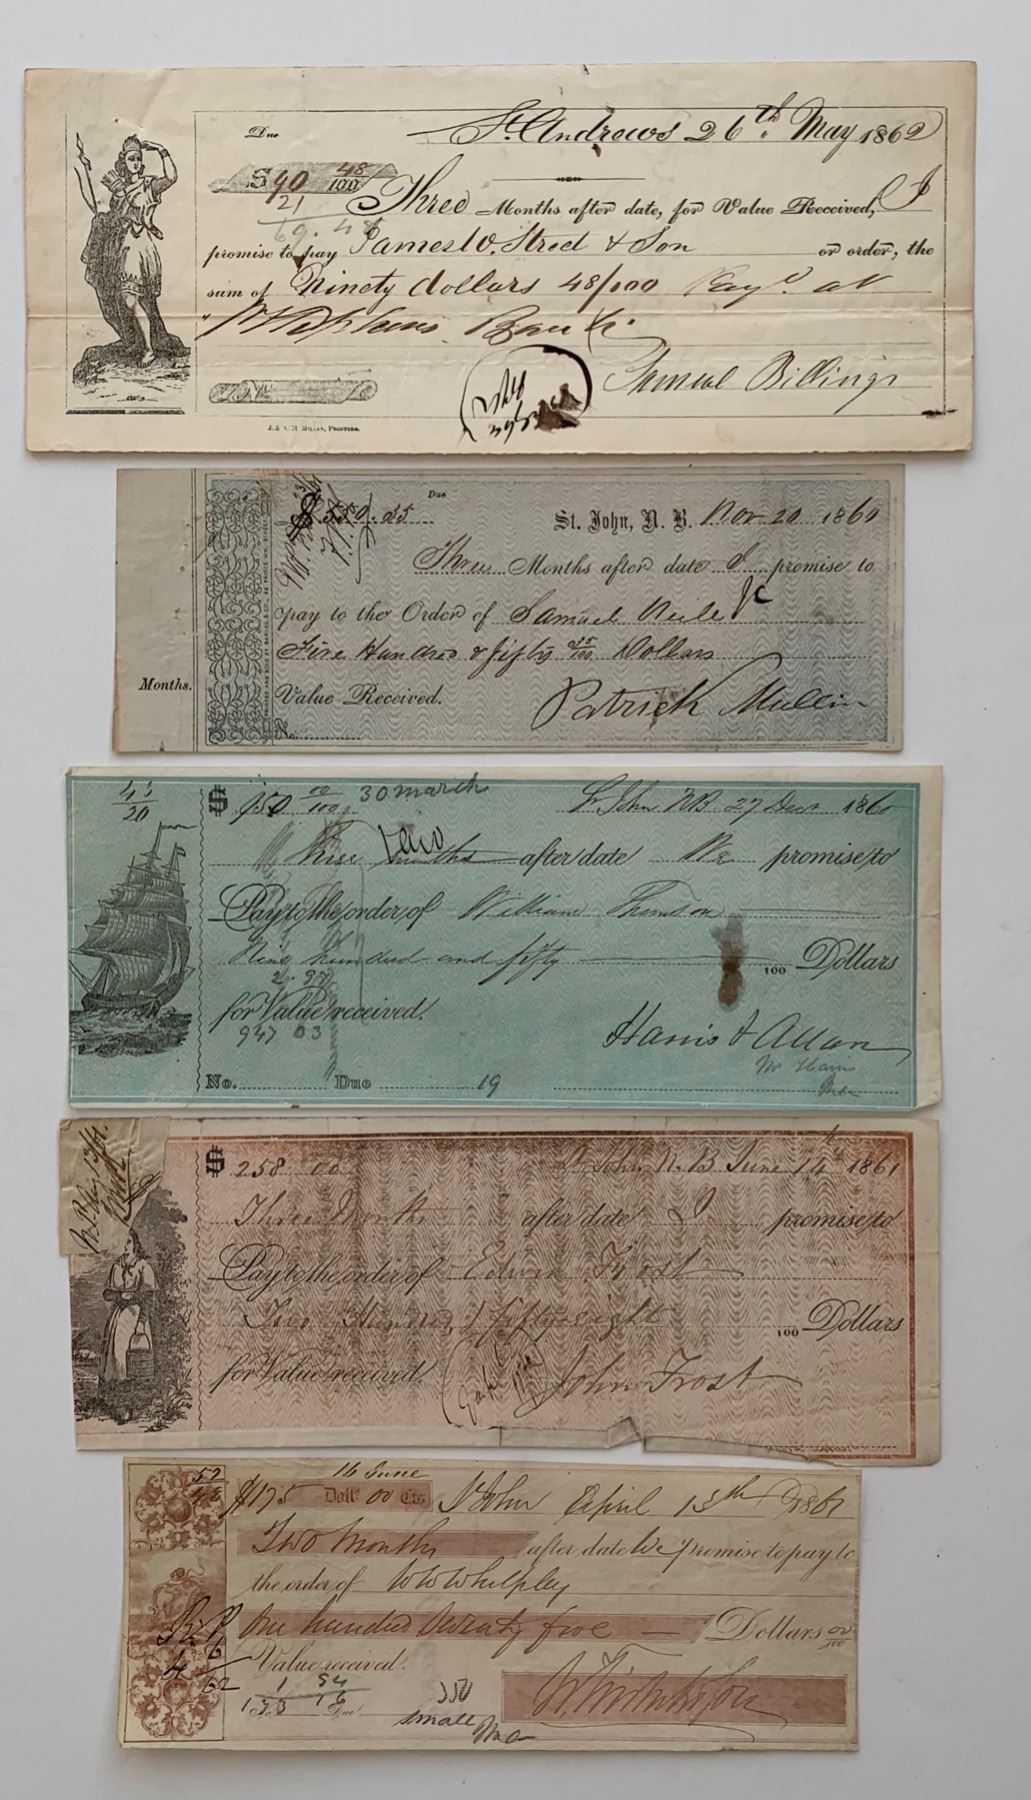 Due
St. Andrews 26th May 1862
$90 48/100
21
69.48
Three Months after date, for Value Received, I
promise to pay James W. Street & Son or order, the
sum of Ninety dollars 48/100 Payl. at
Stephens Bank.
Samuel Billings
No.
J. & A. McMillan, Printers.
Due
$550.35
St. John, N. B. Nov 20 1860
Three Months after date I promise to
pay to the Order of Samuel
Five Hundred & fifty 35/100 Dollars
Months.
Value Received.
Patrick Mullin
No.
43
20
$ 950 00/100 30 march
St. John NB 27 Decr 1860
Three months after date We promise to
Pay to the order of William Thomson
Nine hundred and fifty 100 Dollars
2.97
for Value received.
947 03
Harris & Allan
No. Due 19
$ 258 00
St. John, N.B. June 14th 1861
Three Months after date I promise to
Pay to the order of Edwin Frost
Two Hundred & fifty-eight 100 Dollars
for Value received.
John Frost
52
48
16 June
$175 Doll 00 Cts St John April 13th 1861
Two Months after date We Promise to pay to
the order of W W Whelpley
One hundred Seventy five Dollars 00/100
Value received.
1 84
173 16
Due
small